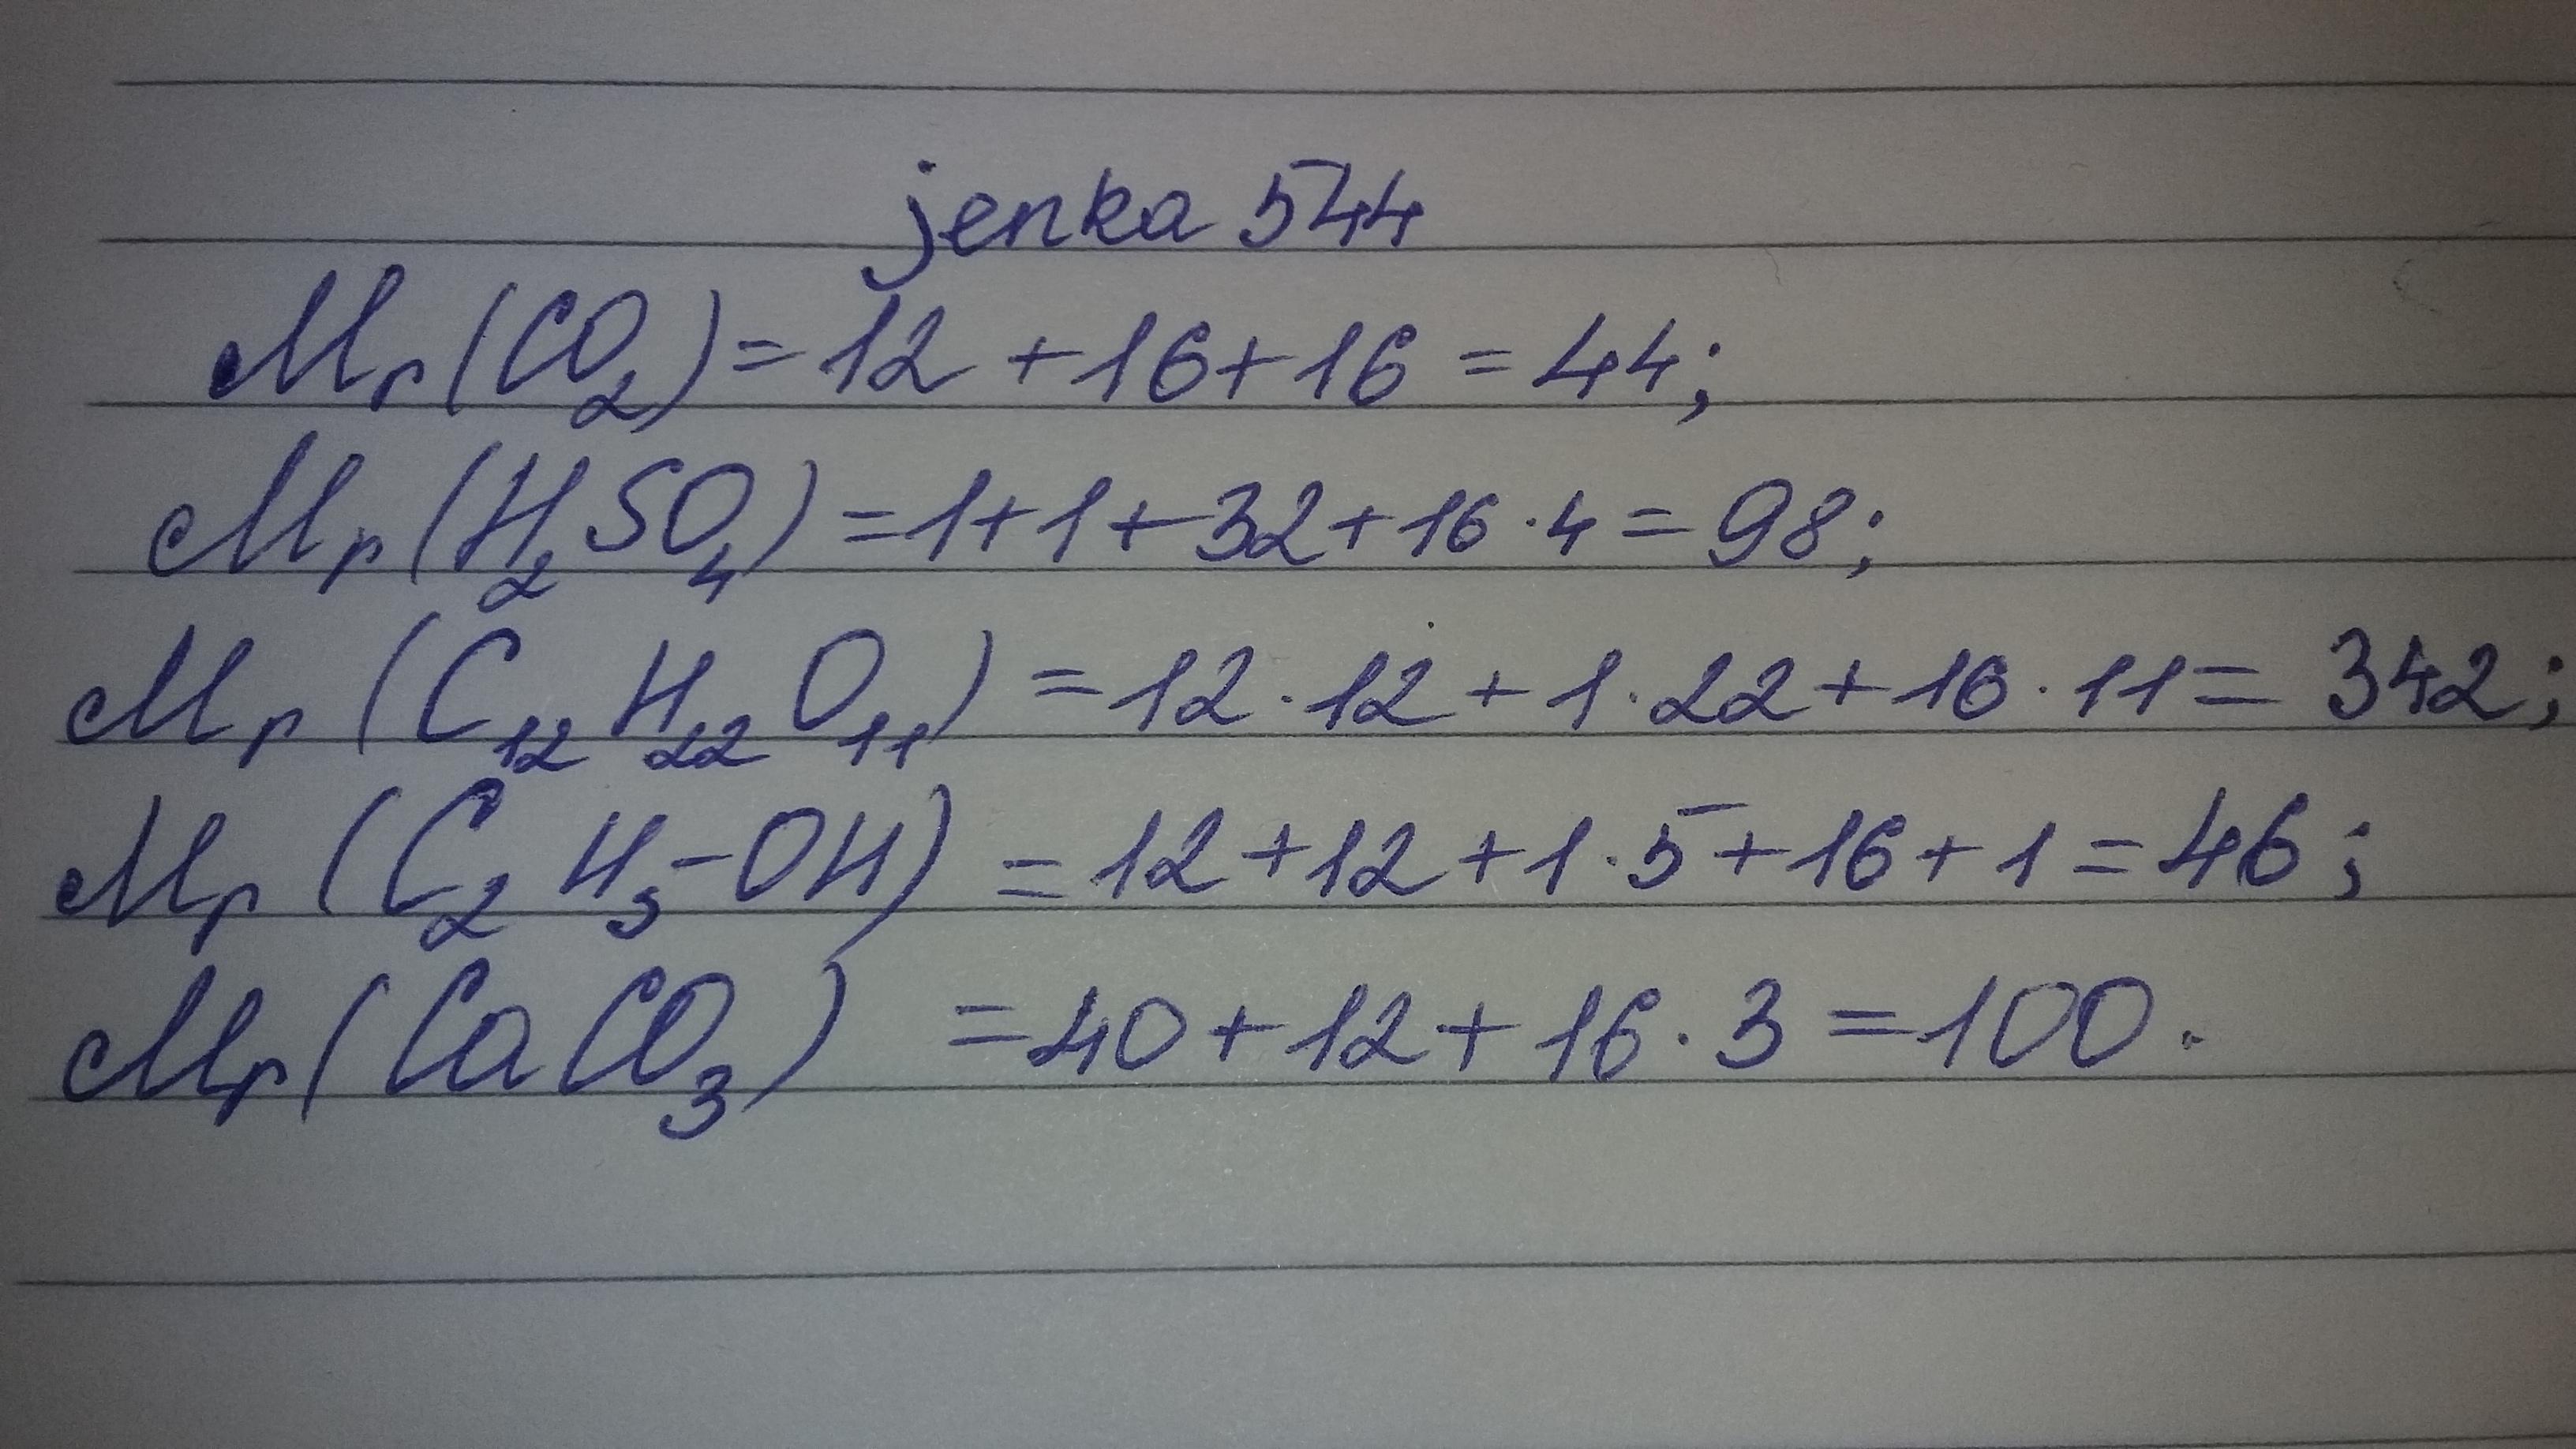 jenka 544
Mr(CO₂) = 12 + 16 + 16 = 44;
Mr(H₂SO₄) = 1+1+32+16·4 = 98;
Mr(C₁₂H₂₂O₁₁) = 12·12+1·22+16·11 = 342;
Mr(C₂H₅-OH) = 12+12+1·5+16+1 = 46;
Mr(CaCO₃) = 40+12+16·3 = 100.